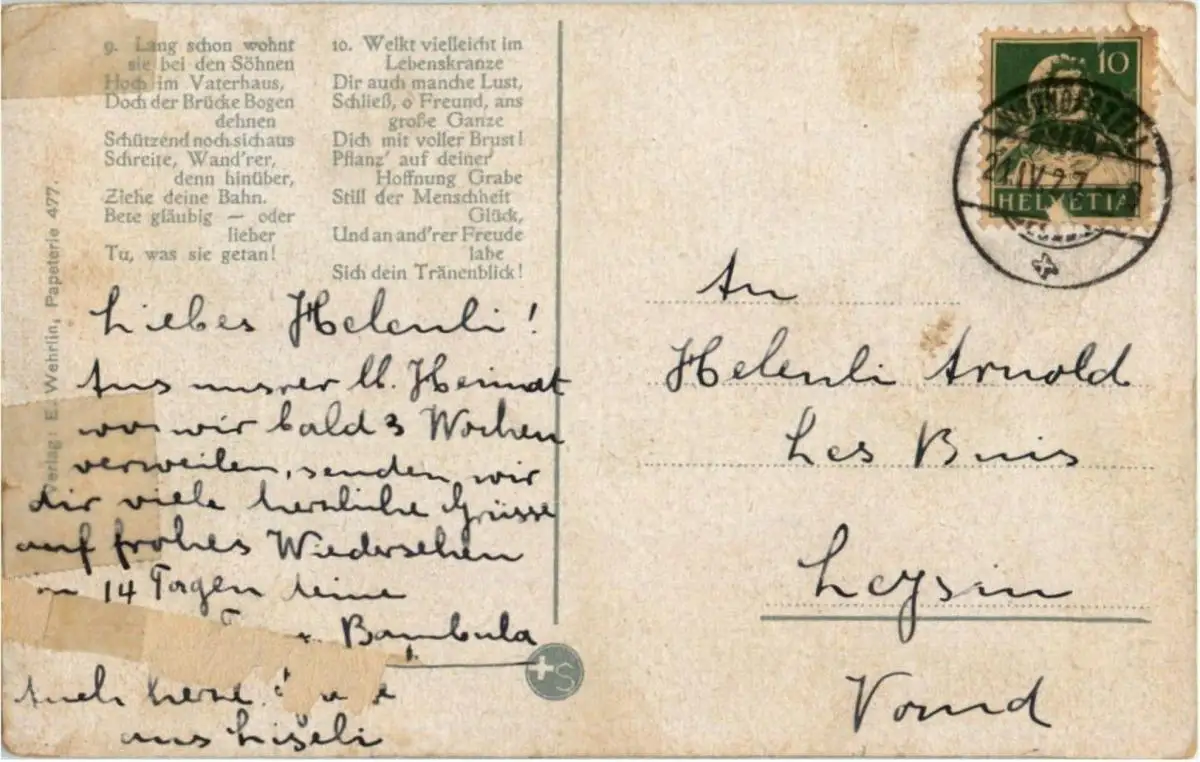 9. Lang schon wohnt
sie bei den Söhnen
Hoch im Vaterhaus,
Doch der Brücke Bogen
dehnen
Schützend noch sich aus
Schreite, Wand'rer,
denn hinüber,
Ziehe deine Bahn.
Bete gläubig — oder
lieber
Tu, was sie getan!
10. Welkt vielleicht im
Lebenskranze
Dir auch manche Lust,
Schließ, o Freund, ans
große Ganze
Dich mit voller Brust!
Pflanz' auf deiner
Hoffnung Grabe
Still der Menschheit
Glück,
Und an and'rer Freude
labe
Sich dein Tränenblick!
Verlag: E. Wehrlin, Papeterie 477.
Liebes Helenli!
Aus unsrer lb. Heimat
wo wir bald 3 Wochen
verweilen, senden wir
dir viele herzliche Grüsse
auf frohes Wiedersehen
in 14 Tagen deine
Bambula
Auch herzl.
aus Liseli
+S
10
HELVETIA
An
Helenli Arnold
Les Buis
Leysin
Vaud